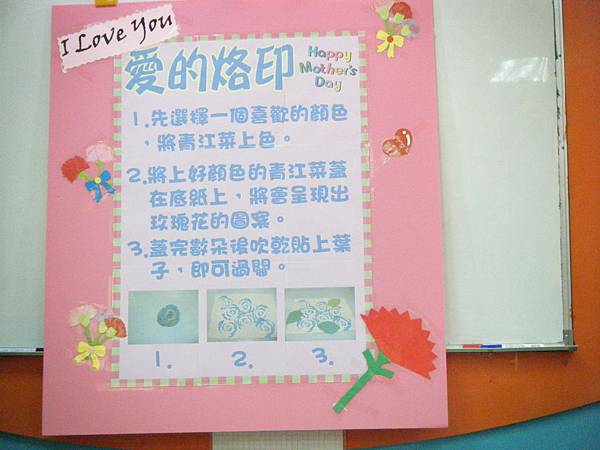 I Love You
愛的烙印
Happy
Mother's
Day
1.先選擇一個喜歡的顏色
，將青江菜上色。
2.將上好顏色的青江菜蓋
在底紙上，將會呈現出
玫瑰花的圖案。
3.蓋完數朵後吹乾貼上葉
子，即可過關。
1.
2.
3.